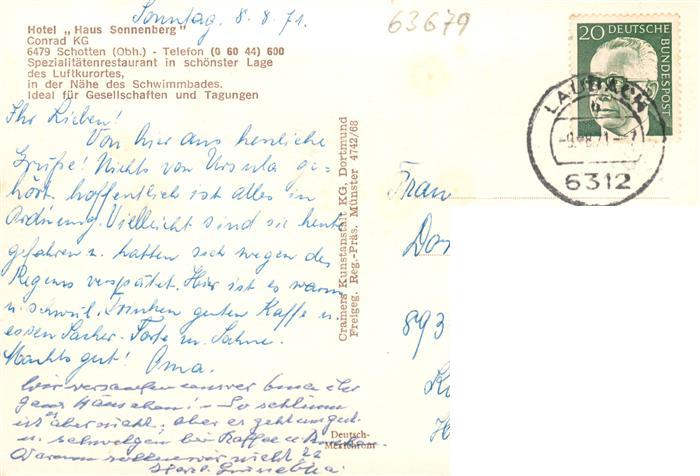 Sonntag, 8.8.71.
63679
Hotel „Haus Sonnenberg"
Conrad KG
6479 Schotten (Obh.) - Telefon (0 60 44) 600
Spezialitätenrestaurant in schönster Lage
des Luftkurortes,
in der Nähe des Schwimmbades.
Ideal für Gesellschaften und Tagungen
Ihr Lieben!
Von hier aus herzliche
Grüße! Nichts von Ursula ge-
hört. hoffentlich ist alles in
Ordnung. Vielleicht sind sie heute
gefahren u. hatten sich wegen des
Regens verspätet. Hier ist es warm
u. schwül. Trinken guten Kaffe u.
essen Sacher-Torte m. Sahne.
Machts gut! Oma.
Wir
ganz Häuschen! - So schlimm
ist es aber nicht, aber es geht uns gut
u. schwelgen bei Kaffee u. Kuchen.
Warum sollen wir nicht
Herzl.
Cramers Kunstanstalt KG. Dortmund
Freigeg. Reg.-Präs. Münster 4742/68
Deutsch-
Mexichrom
20 DEUTSCHE
BUNDESPOST
LAUBACH
-9.-8.71.-7
6312
Frau
893